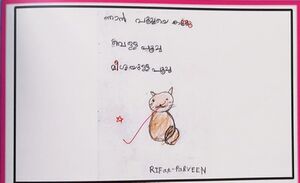 ഞാൻ പൂച്ചയെ കണ്ടു
വെള്ള പൂച്ച
മീശയുള്ള പൂച്ച
RIFAA-PARVEEN